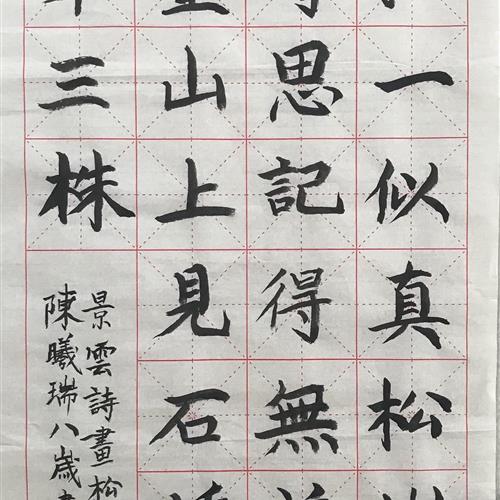 一似真松
思記得無
山上見石
三株
景雲詩畫松
陳曦瑞八歲